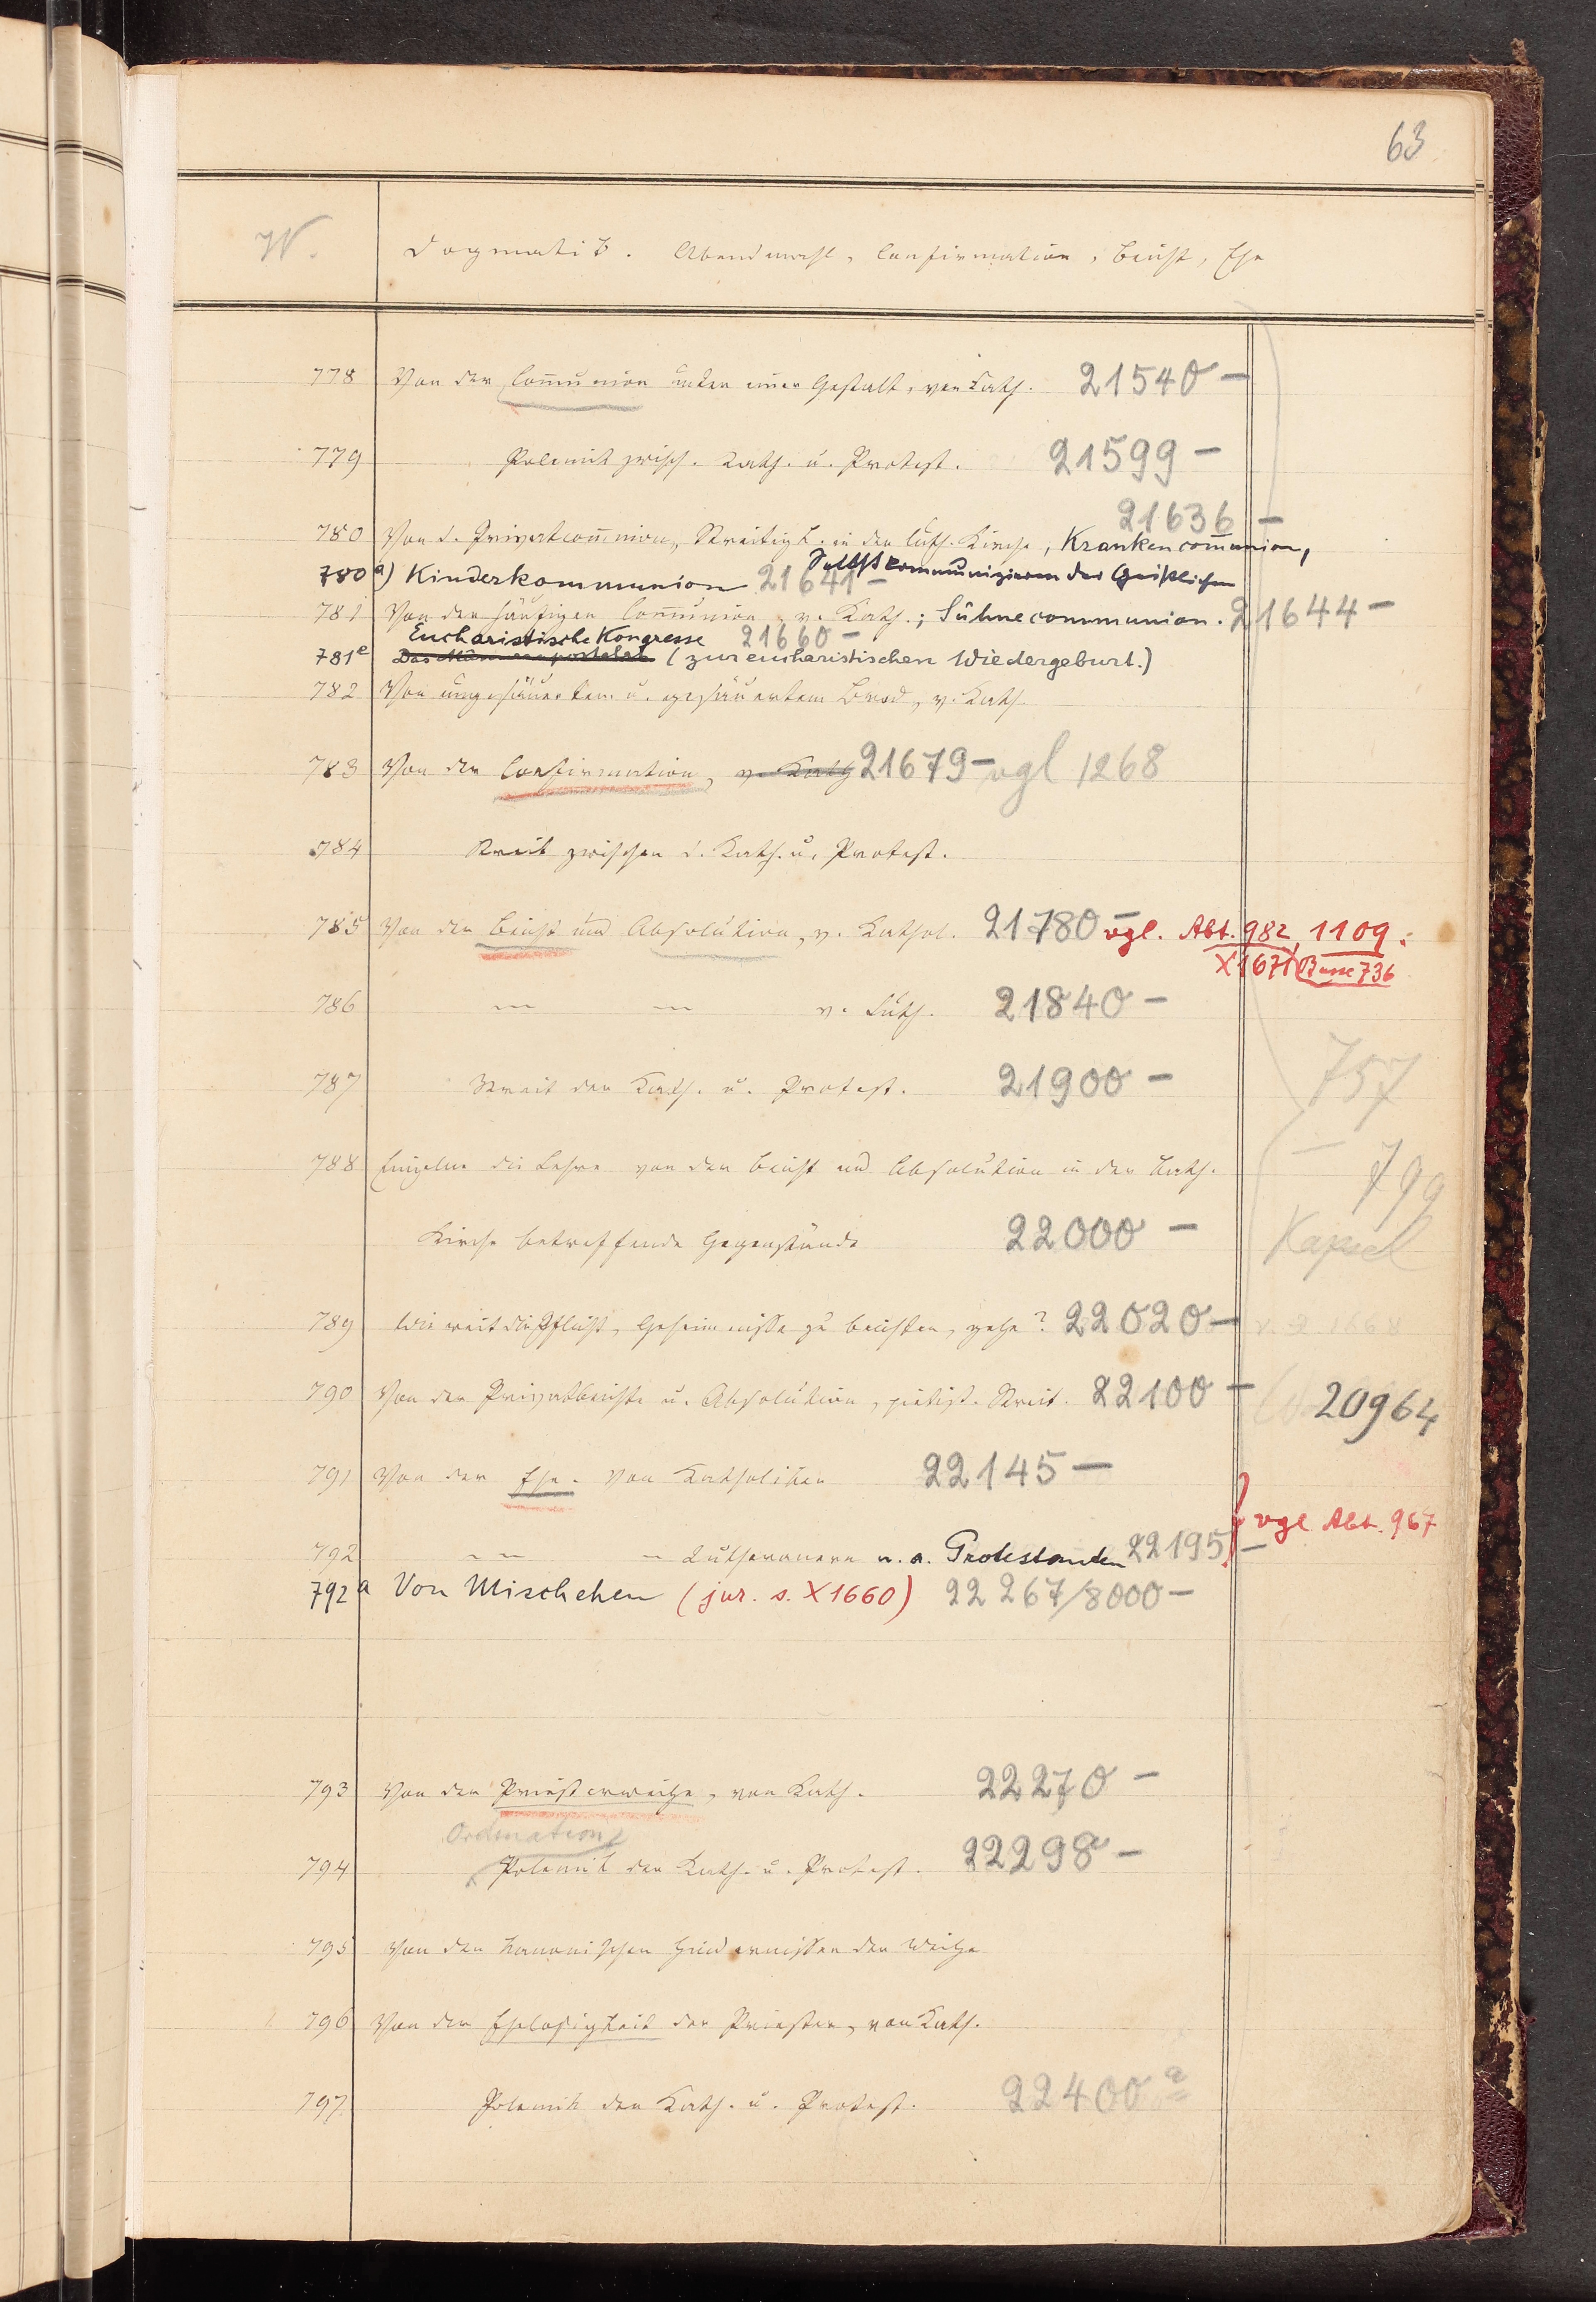 63
IV.
Dogmatik. Abendmahl, Confirmation, Beicht, Ehe
778 Von der Com̄union unter einer Gestalt, von Kath. 21540 –
779 Polemik zwisch. Kath. u. Protest. 21599 –
21636 –
780 Von d. Privatcom̄union, Streitigk. in der luth. Kirche, Krankencom̄union,
Selbstkommunizieren der Geistlichen
780a) Kinderkommunion 21641 –
781 Von der häufigen Com̄union, v. Kath.; Sühnecommunion. 21644 –
Eucharistische Kongresse 21660 –
781e Das Männerapostolat (zur eucharistischen Wiedergeburt.)
782 Von ungesäuertem u. gesäuertem Brod, v. Kath.
783 Von der Confirmation, v. Kath 21679 – vgl 1268
784 Streit zwischen d. Kath. u. Protest.
785 Von der Beicht und Absolution, v. Kathol. 21780 – vgl. Abt. 982, 1109.
X1671 Busse 736
786 — — v. Luth. 21840 –
787 Streit der Kath. u. Protest. 21900 –
757
788 Einzelne die Lehre von der Beicht und Absolution in der Kath.
– 799
Kirche betreffende Gegenstände 22000 –
Kapsel
789 Wie weit die Pflicht, Geheimnisse zu beichten, gehe? 22020 –
790 Von der Privatbeichte u. Absolution, pietist. Streit. 22100 – 20964
791 Von der Ehe. Von Katholiken 22145 –
vgl. Abt. 967
792 — — – Lutheranern u. a. Protestanten 22195 –
792a Von Mischehen (jur. s. X1660) 22267/8000 –
793 Von der Priesterweihe, von Kath. 22270 –
Ordination
794 Polemik der Kath. u. Protest. 22298 –
795 Von den kanonischen Hindernissen der Weihe
796 Von der Ehelosigkeit der Priester, von Kath.
797 Polemik der Kath. u. Protest. 22400 a